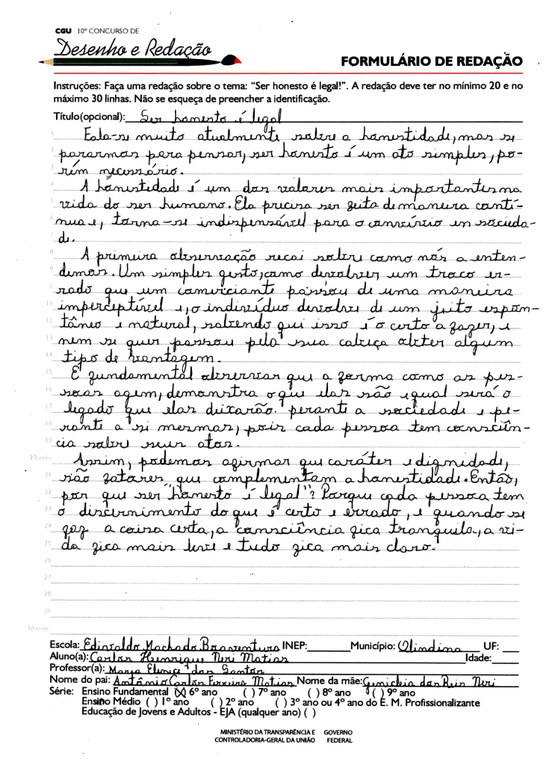 CGU 10º CONCURSO DE
Desenho e Redação
FORMULÁRIO DE REDAÇÃO
Instruções: Faça uma redação sobre o tema: "Ser honesto é legal!". A redação deve ter no mínimo 20 e no
máximo 30 linhas. Não se esqueça de preencher a identificação.
Título(opcional): Ser honesto é legal
Fala-se muito atualmente sobre a honestidade, mas se
pararmos para pensar, ser honesto é um ato simples, po-
rém necessário.
A honestidade é um dos valores mais importantes na
vida do ser humano. Ela precisa ser feita de maneira contí-
nua e, torna-se indispensável para o convívio em socieda-
de.
A primeira observação recai sobre como nós a enten-
demos. Um simples gesto, como devolver um troco er-
rado que um comerciante passou de uma maneira
imperceptível e, o indivíduo devolve de um jeito espon-
tâneo e natural, sabendo que isso é o certo a fazer, e
nem se quer passou pela sua cabeça obter algum
tipo de vantagem.
É fundamental observar que a forma como as pes-
soas agem, demonstra o que elas são e qual será o
legado que elas deixarão perante a sociedade e pe-
rante a si mesmas, pois cada pessoa tem consciên-
cia sobre seus atos.
Assim, podemos afirmar que caráter e dignidade,
são fatores que complementam a honestidade. Então,
por que ser "honesto é legal"? Porque cada pessoa tem
o discernimento do que é certo e errado, e quando se
fez a coisa certa, a consciência fica tranquila, a vi-
da fica mais leve e tudo fica mais claro.
Escola: Edivaldo Machado Boaventura INEP: Município: Olindina UF:
Aluno(a): Carlos Henrique Neri Matias Idade:
Professor(a): dos Santos
Nome do pai: Antônio Carlos Ferreira Matias Nome da mãe: dos Reis Neri
Série: Ensino Fundamental (X) 6º ano ( ) 7º ano ( ) 8º ano ( ) 9º ano
Ensino Médio ( ) 1º ano ( ) 2º ano ( ) 3º ano ou 4º ano do E. M. Profissionalizante
Educação de Jovens e Adultos - EJA (qualquer ano) ( )
MINISTÉRIO DA TRANSPARÊNCIA E GOVERNO
CONTROLADORIA-GERAL DA UNIÃO FEDERAL